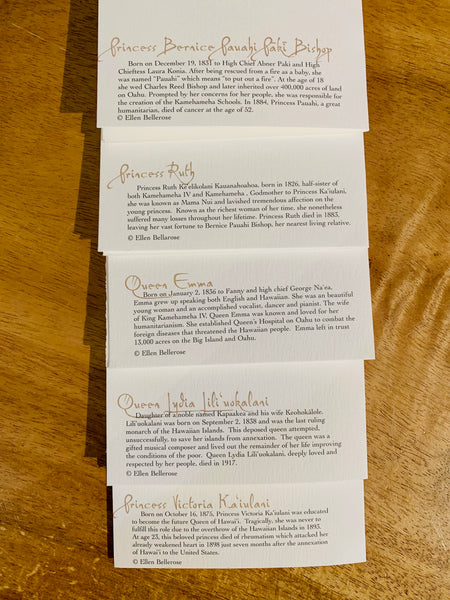 Princess Bernice Pauahi Pākī Bishop
Born on December 19, 1831 to High Chief Abner Paki and High
Chieftess Laura Konia. After being rescued from a fire as a baby, she
was named "Pauahi" which means "to put out a fire". At the age of 18
she wed Charles Reed Bishop and later inherited over 400,000 acres of land
on Oahu. Prompted by her concerns for her people, she was responsible for
the creation of the Kamehameha Schools. In 1884, Princess Pauahi, a great
humanitarian, died of cancer at the age of 52.
© Ellen Bellerose
Princess Ruth
Princess Ruth Ke'elikolani Kauanahoahoa, born in 1826, half-sister of
both Kamehameha IV and Kamehameha , Godmother to Princess Ka'iulani,
she was known as Mama Nui and lavished tremendous affection on the
young princess. Known as the richest woman of her time, she nonetheless
suffered many losses throughout her lifetime. Princess Ruth died in 1883,
leaving her vast fortune to Bernice Pauahi Bishop, her nearest living relative.
© Ellen Bellerose
Queen Emma
Born on January 2, 1836 to Fanny and high chief George Na'ea,
Emma grew up speaking both English and Hawaiian. She was an beautiful
young woman and an accomplished vocalist, dancer and pianist. The wife
of King Kamehameha IV, Queen Emma was known and loved for her
humanitarianism. She established Queen's Hospital on Oahu to combat the
foreign diseases that threatened the Hawaiian people. Emma left in trust
13,000 acres on the Big Island and Oahu.
© Ellen Bellerose
Queen Lydia Lili'uokalani
Daughter of a noble named Kapaakea and his wife Keohokālole,
Lili'uokalani was born on September 2, 1838 and was the last ruling
monarch of the Hawaiian Islands. This deposed queen attempted,
unsuccessfully, to save her islands from annexation. The queen was a
gifted musical composer and lived out the remainder of her life improving
the conditions of the poor. Queen Lydia Lili'uokalani, deeply loved and
respected by her people, died in 1917.
© Ellen Bellerose
Princess Victoria Ka'iulani
Born on October 16, 1875, Princess Victoria Ka'iulani was educated
to become the future Queen of Hawai'i. Tragically, she was never to
fulfill this role due to the overthrow of the Hawaiian Islands in 1893.
At age 23, this beloved princess died of rheumatism which attacked her
already weakened heart in 1898 just seven months after the annexation
of Hawai'i to the United States.
© Ellen Bellerose